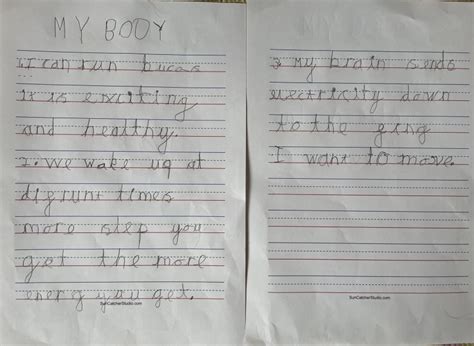 MY BODY
1. I can run bucos
it is exciting
and healthy.
2. we wake uq at
digrunt times
more slep you
get the more
energy you get.
SunCatcherStudio.com
3 My brain sends
electricity down
to the ging
I want to move.
SunCatcherStudio.com